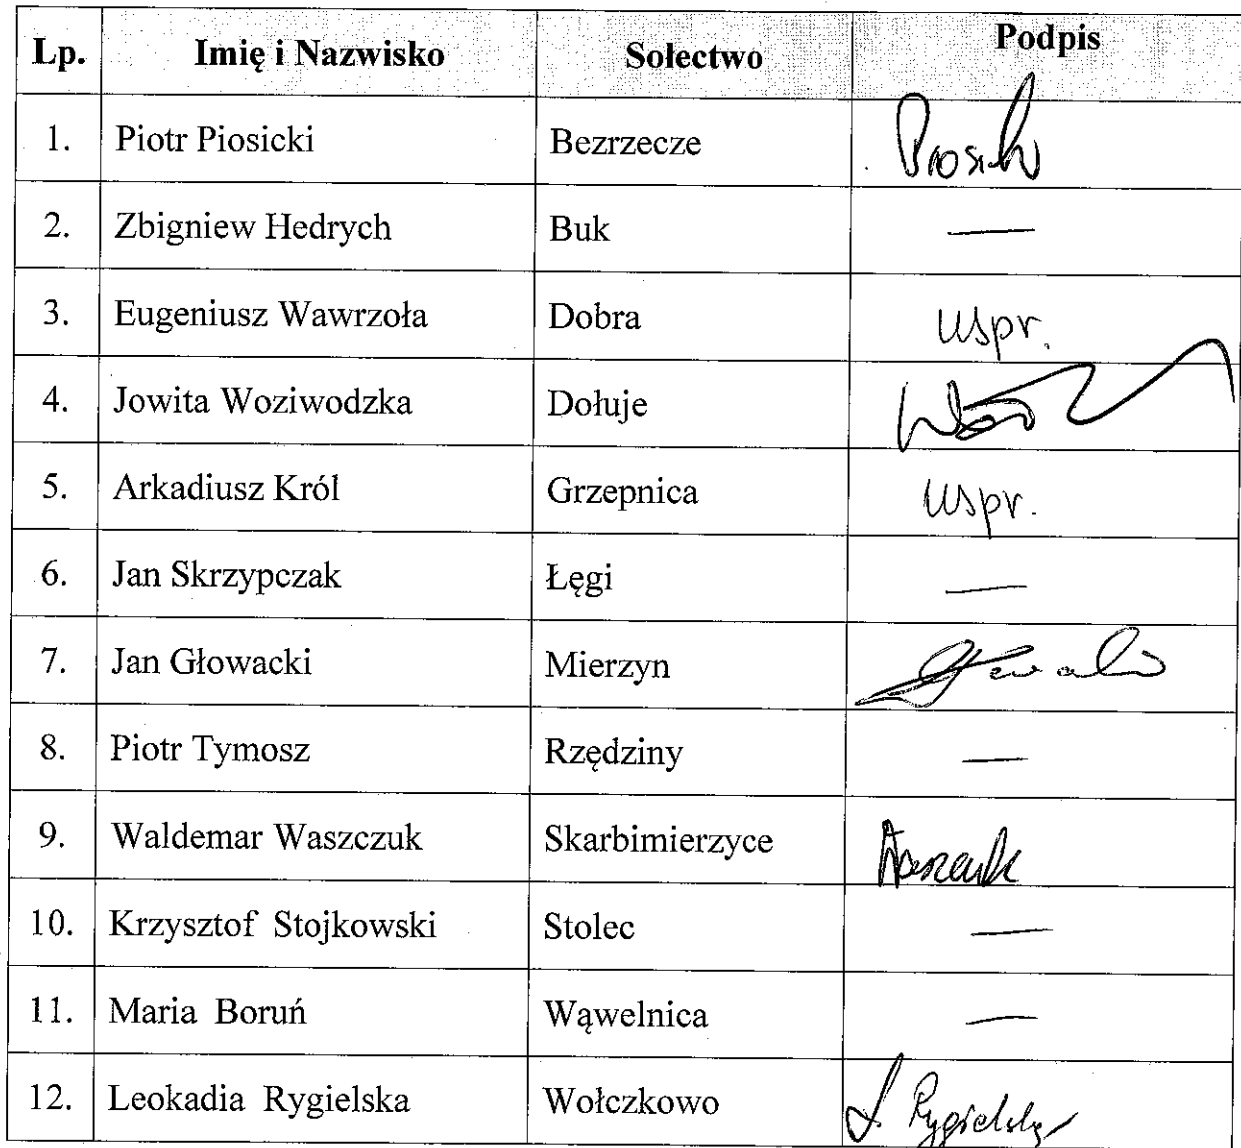 Lp. Imię i Nazwisko Sołectwo Podpis
1. Piotr Piosicki Bezrzecze
2. Zbigniew Hedrych Buk —
3. Eugeniusz Wawrzoła Dobra uspr.
4. Jowita Woziwodzka Dołuje
5. Arkadiusz Król Grzepnica uspr.
6. Jan Skrzypczak Łęgi —
7. Jan Głowacki Mierzyn
8. Piotr Tymosz Rzędziny —
9. Waldemar Waszczuk Skarbimierzyce
10. Krzysztof Stojkowski Stolec —
11. Maria Boruń Wąwelnica —
12. Leokadia Rygielska Wołczkowo L. Rygielska